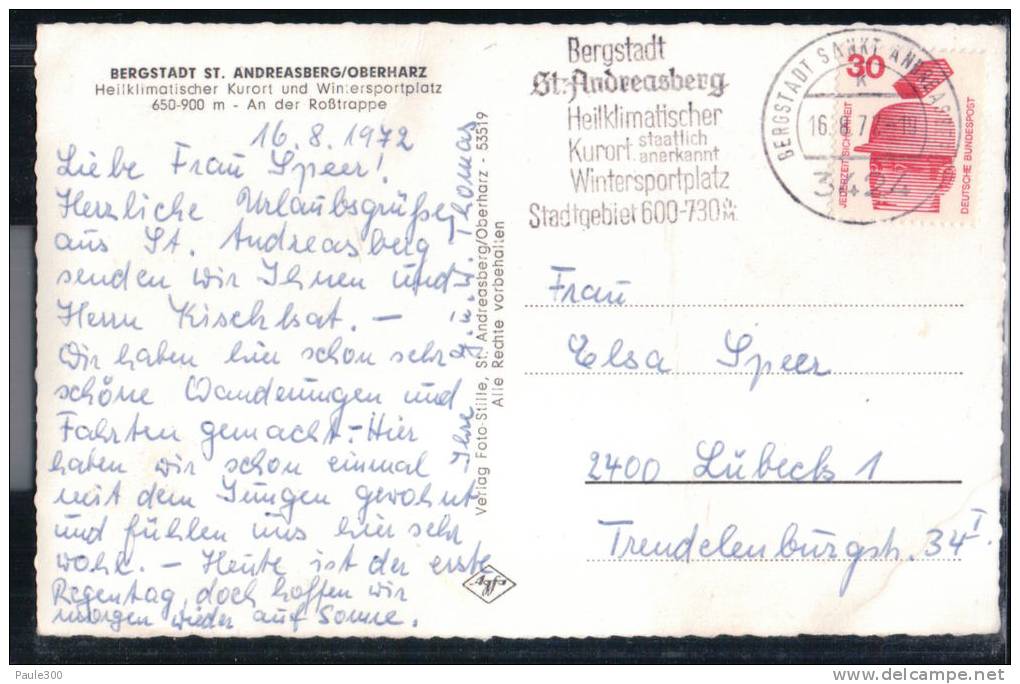 BERGSTADT ST. ANDREASBERG/OBERHARZ
Heilklimatischer Kurort und Wintersportplatz
650-900 m - An der Roßtrappe
16.8.1972
Liebe Frau Speer!
Herzliche Urlaubsgrüße
aus St. Andreasberg
senden wir Ihnen und
Herrn
Wir haben hier schon sehr
schöne Wanderungen und
Fahrten gemacht.- Hier
haben wir schon einmal
mit dem Jungen gewohnt
und fühlen uns hier sehr
wohl. - Heute ist der erste
Regentag, doch hoffen wir
morgen wieder auf Sonne.
Ihre
Verlag Foto-Stille, St. Andreasberg/Oberharz - 53519
Alle Rechte vorbehalten
Bergstadt
St. Andreasberg
Heilklimatischer
Kurort staatlich anerkannt
Wintersportplatz
Stadtgebiet 600-730 ü. M.
BERGSTADT SANKT ANDREASB
16.8.7
3424
30
JEDERZEIT SICHERHEIT
DEUTSCHE BUNDESPOST
Frau
Elsa Speer
2400 Lübeck 1
Trendelenburgstr. 34 I.
Agfa
Paule300
delcampe.net